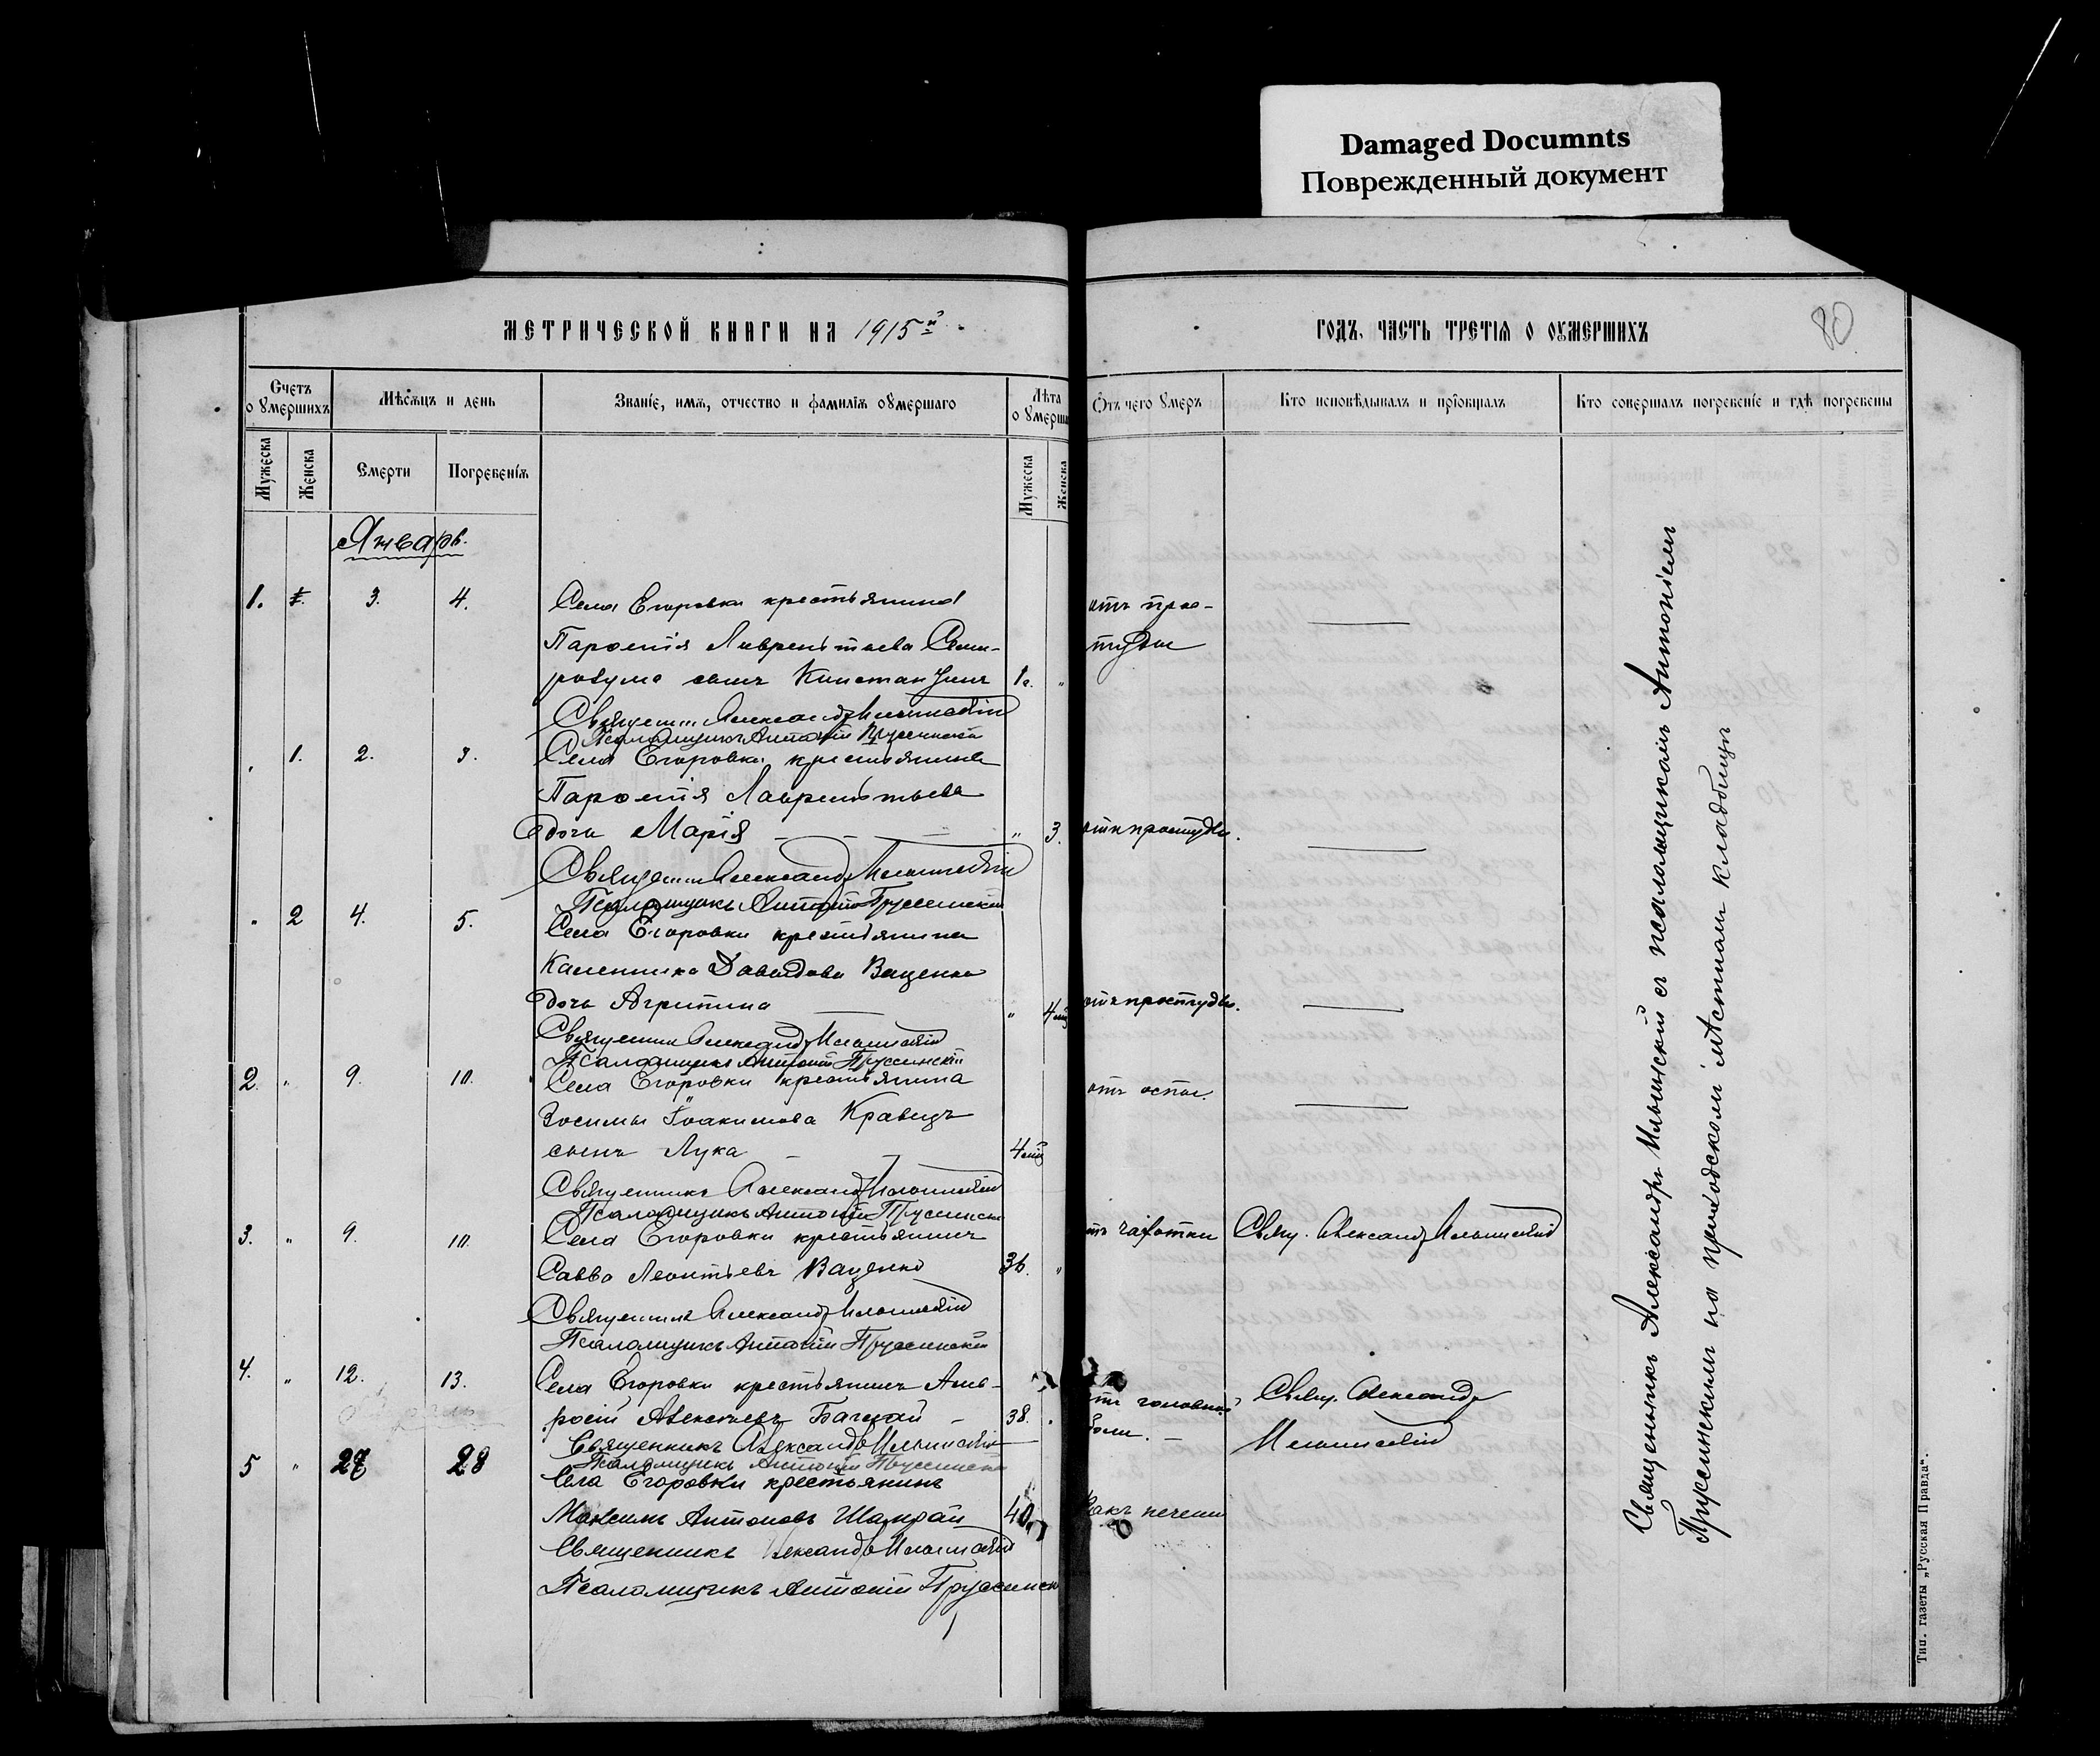 Damaged Documnts
Поврежденный документ
МЕТРИЧЕСКОЙ КНИГИ НА 1915й
ГОДЪ, ЧАСТЬ ТРЕТІѦ О ОУМЕРШИХЪ
80
Счетъ о умершихъ
Мѣсѧцъ и день
Званіе, имѧ, отчество и фамиліѧ оумершаго
Лѣта о умерш
Отъ чего умеръ
Кто исповѣдывалъ и пріобщалъ
Кто совершалъ погребеніе и гдѣ погребены
Мужеска
Женска
Смерти
Погребеніѧ
Мужеска
Женска
Январь.
1. 3. 4. Села Егоровки крестьянина отъ прос-
Парѳенія Лаврентьева Семи- туды
розума сынъ Константинъ 1г. "
Священ. Александръ Ильинскій
Псаломщикъ Антоній Пруссинскій
" 1. 2. 3. Села Егоровки крестьянина
Парѳенія Лаврентьева
дочь Марія " 3. отъ простуды.
Священ. Александръ Ильинскій
Псаломщикъ Антоній Пруссинскій
" 2 4. 5. Села Егоровки крестьянина
Каленика Давидова Ваценко
дочь Агрипина " 4 отъ простуды.
Священник Александръ Ильинскій
Псаломщикъ Антоній Пруссинскій
2. " 9. 10. Села Егоровки крестьянина отъ оспы.
Зосимы Іоакимова Кравецъ
сынъ Лука 4
Священникъ Александръ Ильинскій
Псаломщикъ Антоній Пруссинскій
3. " 9. 10. Села Егоровки крестьянинъ тъ чахотки Свящ. Александръ Ильинскій
Савва Леонтьевъ Ваценко 36. "
Священникъ Александръ Ильинскій
Псаломщикъ Антоній Пруссинскій
4. " 12. 13. Села Егоровки крестьянинъ Амв- тъ головной Свящ. Александръ
росій Алексѣевъ 38. " боли. Ильинскій
Священникъ Александръ Ильинскій
Псаломщикъ Антоній Пруссинскій
5 " 27 28 Села Егоровки крестьянинъ
Максимъ Антоновъ Шамрай 40 Ракъ печени
Священникъ Александръ Ильинскій
Псаломщикъ Антоній Пруссинск
Священникъ Александръ Ильинскій съ псаломщикомъ Антоніемъ
Пруссинскимъ на приходскомъ мѣстномъ кладбищѣ
Тип. газеты „Русская Правда“.